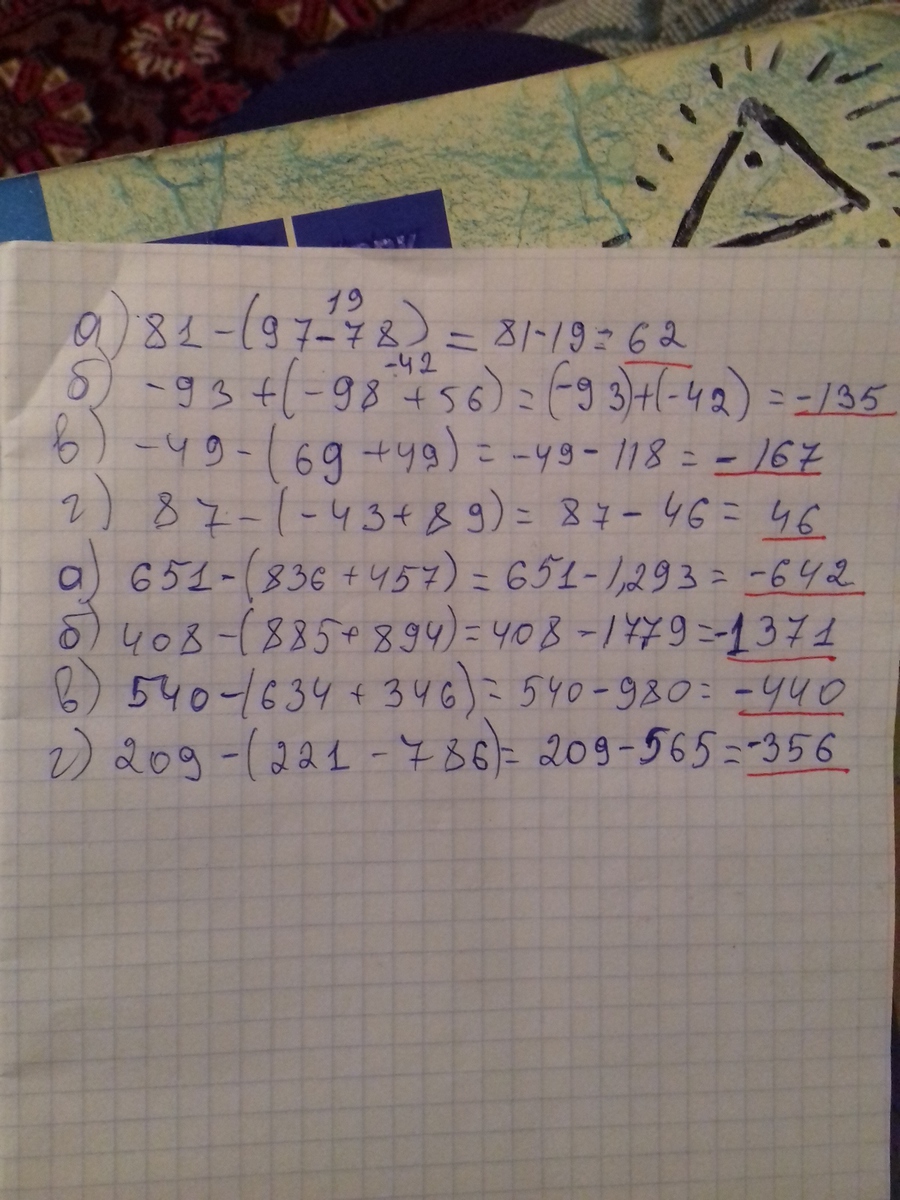 а) 81-(97-78) = 81-19=62
19
б) -93+(-98+56)=(-93)+(-42) = -135
-42
в) -49-(69+49)= -49-118= -167
г) 87-(-43+89)= 87-46= 46
а) 651-(836+457)=651-1,293= -642
б) 408-(885+894)=408-1779=-1371
в) 540-(634+346)= 540-980= -440
г) 209-(221-786)= 209-565=-356